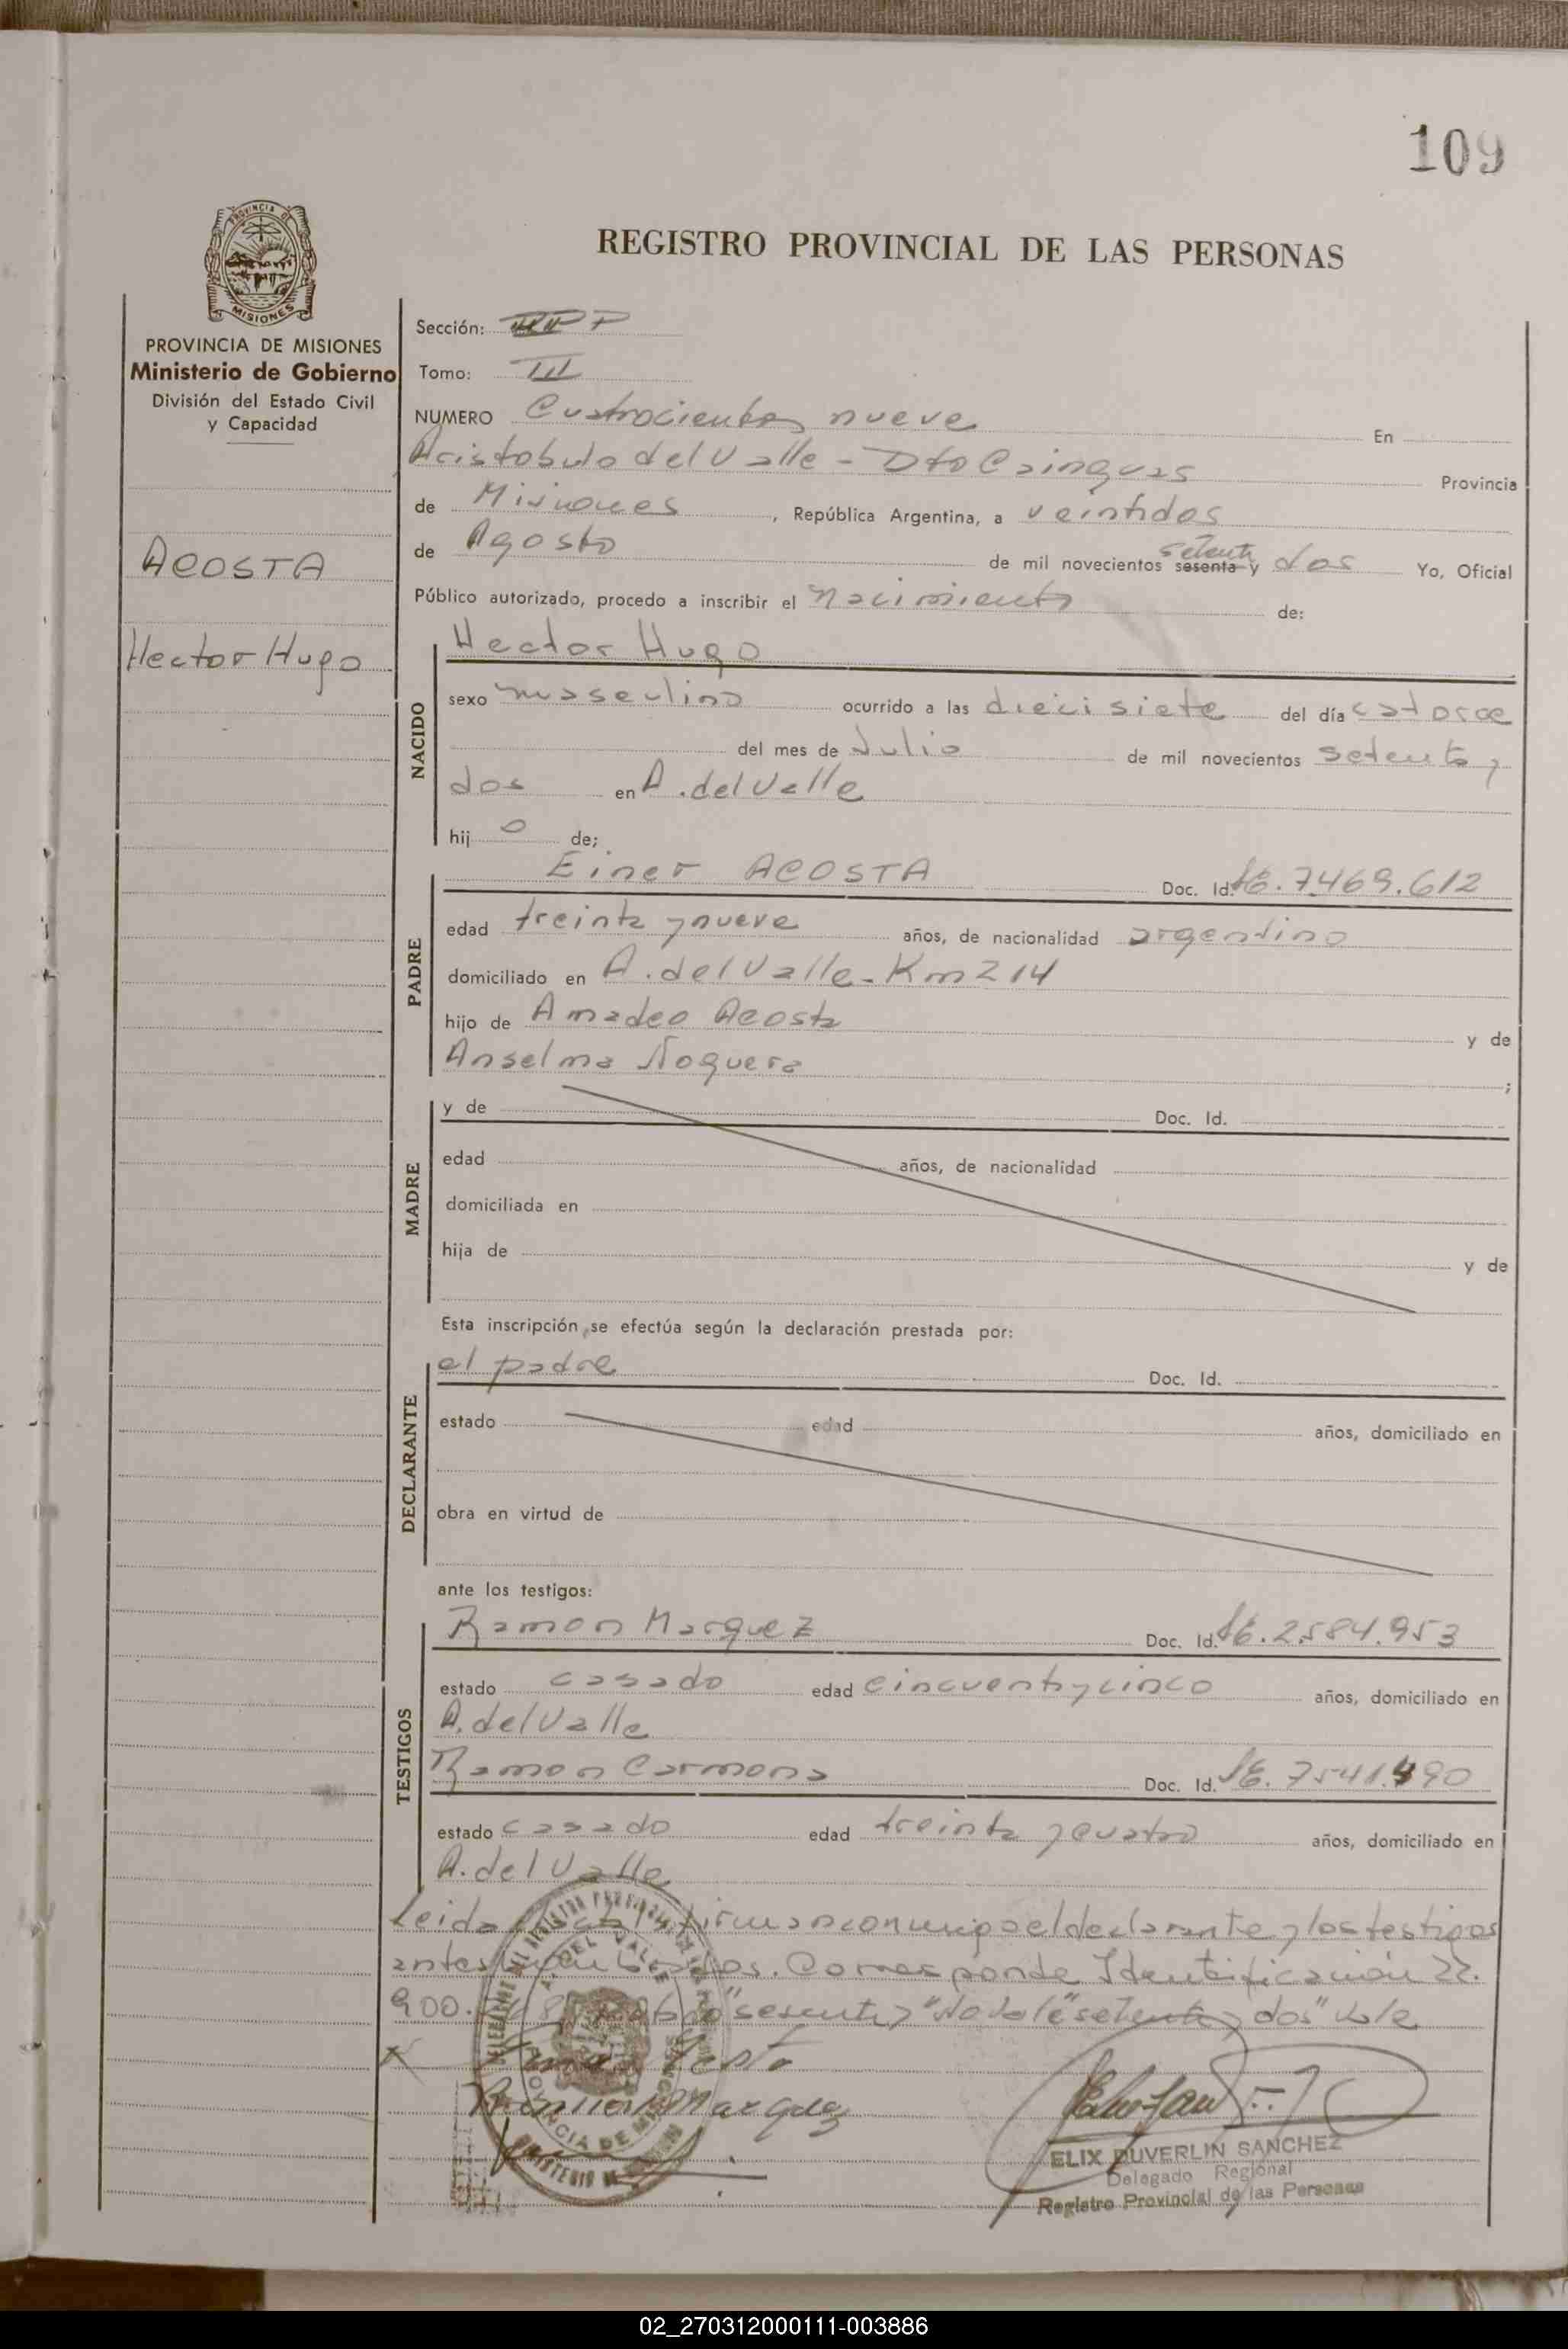 109
PROVINCIA DE
MISIONES
REGISTRO PROVINCIAL DE LAS PERSONAS
PROVINCIA DE MISIONES
Ministerio de Gobierno
División del Estado Civil
y Capacidad
ACOSTA
Hector Hugo
Sección:
Tomo: III
NUMERO Cuatrocientos nueve En
Aristobulo del Valle - Dto Cainguas Provincia
de Misiones, República Argentina, a veintidos
de Agosto de mil novecientos sesenta y setenta dos Yo, Oficial
Público autorizado, procedo a inscribir el nacimiento de:
NACIDO
Hector Hugo
sexo masculino ocurrido a las diecisiete del día catorce
del mes de Julio de mil novecientos setenta y
dos en A. del Valle
hij o de;
PADRE
Einer ACOSTA Doc. Id. 7.469.612
edad treinta y nueve años, de nacionalidad argentino
domiciliado en A. del Valle - Km 214
hijo de Amadeo Acosta y de
Anselma Noguera ;
MADRE
y de Doc. Id.
edad años, de nacionalidad
domiciliada en
hija de y de
Esta inscripción se efectúa según la declaración prestada por:
DECLARANTE
el padre Doc. Id.
estado edad años, domiciliado en
obra en virtud de
ante los testigos:
TESTIGOS
Ramon Marquez Doc. Id. 2.584.953
estado casado edad cincuenta y cinco años, domiciliado en
A. del Valle
Ramon Carmona Doc. Id. 7.541.490
estado casado edad treinta y cuatro años, domiciliado en
A. del Valle
Leida firman conmigo el declarante y los testigos
antes. Corresponde Identificación 22.
900. "sesenta y" No vale "setenta y dos" vale
Marquez
ELIX DUVERLIN SANCHEZ
Delegado Regional
Registro Provincial de las Personas
02_270312000111-003886